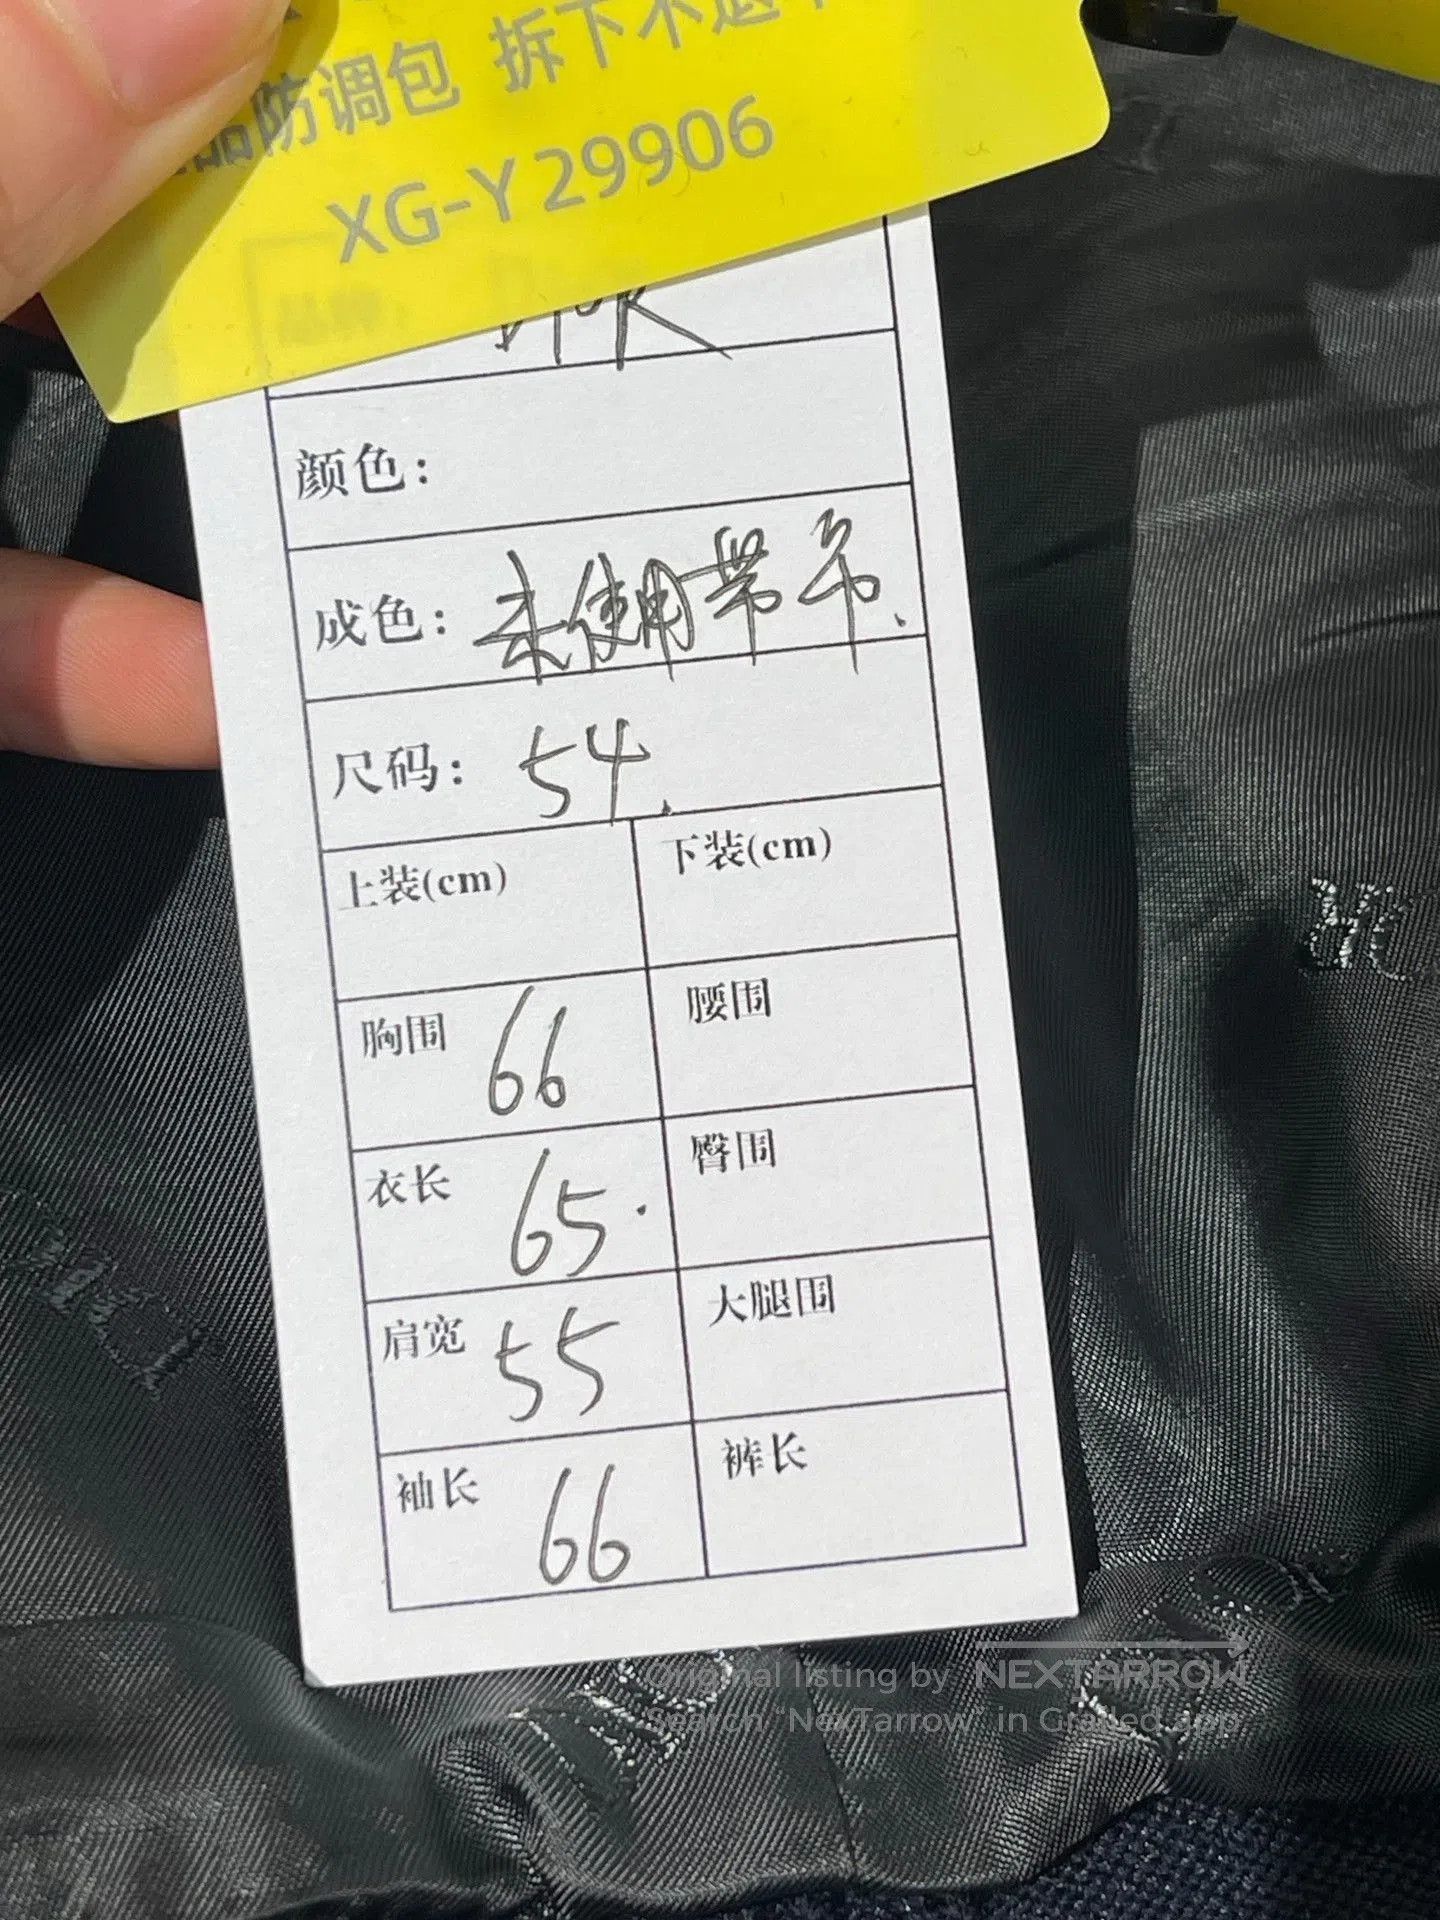 品防调包 拆下不退
XG-Y29906
品牌:
DIOR
颜色:
成色: 未使用带吊.
尺码: 54.
上装(cm) 下装(cm)
胸围 66 腰围
衣长 65. 臀围
肩宽 55 大腿围
袖长 66 裤长
Original listing by NEXTARROW
Search "NexTarrow" in Grailed app.